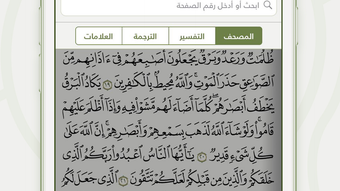 ابحث أو أدخل رقم الصفحة
المصحف التفسير الترجمة العلامات
ظُلُمَٰتٌ وَرَعْدٌ وَبَرْقٌ يَجْعَلُونَ أَصَٰبِعَهُمْ فِىٓ ءَاذَانِهِم مِّنَ
ٱلصَّوَٰعِقِ حَذَرَ ٱلْمَوْتِ ۚ وَٱللَّهُ مُحِيطٌۢ بِٱلْكَٰفِرِينَ ١٩ يَكَادُ ٱلْبَرْقُ
يَخْطَفُ أَبْصَٰرَهُمْ ۖ كُلَّمَآ أَضَآءَ لَهُم مَّشَوْا۟ فِيهِ وَإِذَآ أَظْلَمَ عَلَيْهِمْ
قَامُوا۟ ۚ وَلَوْ شَآءَ ٱللَّهُ لَذَهَبَ بِسَمْعِهِمْ وَأَبْصَٰرِهِمْ ۚ إِنَّ ٱللَّهَ عَلَىٰ
كُلِّ شَىْءٍ قَدِيرٌ ٢٠ يَٰٓأَيُّهَا ٱلنَّاسُ ٱعْبُدُوا۟ رَبَّكُمُ ٱلَّذِى
خَلَقَكُمْ وَٱلَّذِينَ مِن قَبْلِكُمْ لَعَلَّكُمْ تَتَّقُونَ ٢١ ٱلَّذِى جَعَلَ لَكُمُ